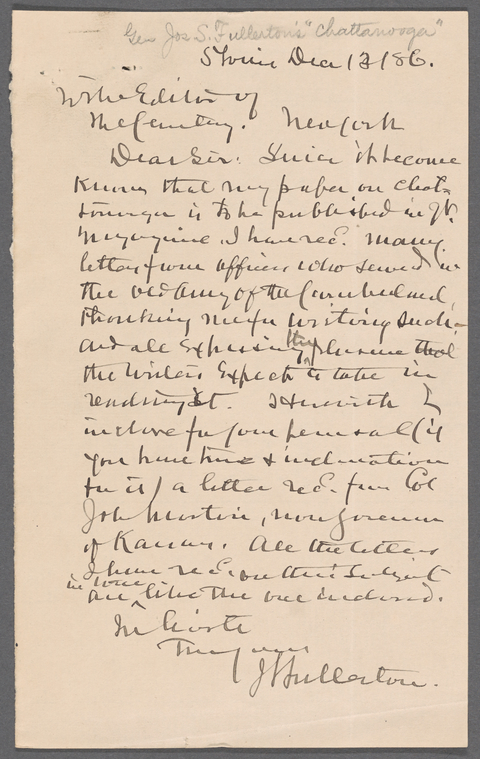 Gen Jos. S. Fullerton's "Chattanooga"
St Louis Dec 13/86.
To the Editor of
The Century. New York
Dear Sir: Since it become
known that my paper on Chat-
tanooga is to be published in yr.
Magazine, I have rec'd. many
letters from officers who served in
the old Army of the Cumberland,
thanking me for writing such—
and all expressing the pleasure that
the writers expect to take in
reading it. I herewith
inclose for your perusal (if
you have time & inclination
for it) a letter rec'd. from Col
John Martin, now Governor
of Kansas. All the letters
I have rec'd. on this subject
in tone
are like the one inclosed.
In haste
Truly yours
J S Fullerton.